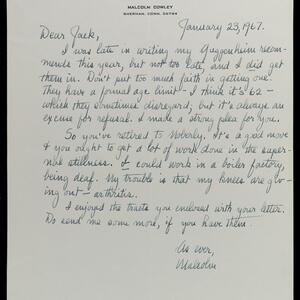 MALCOLM COWLEY
SHERMAN, CONN. 06784
January 23, 1967.
Dear Jack,
I was late in writing my Guggenheim recom-
mends this year, but not too late, and I did get
them in. Don't put too much faith in getting one.
They have a formal age limit - I think it's 62 -
which they sometimes disregard; but it's always an
excuse for refusal. I made a strong plea for you.
So you've retired to Moberly. It's a good move
& you ought to get a lot of work done in the super-
nal stillness. I could work in a boiler factory,
being deaf. My trouble is that my knees are giv-
ing out - arthritis.
I enjoyed the tracts you enclosed with your letter.
Do send me some more, if you have them.
As ever,
Malcolm